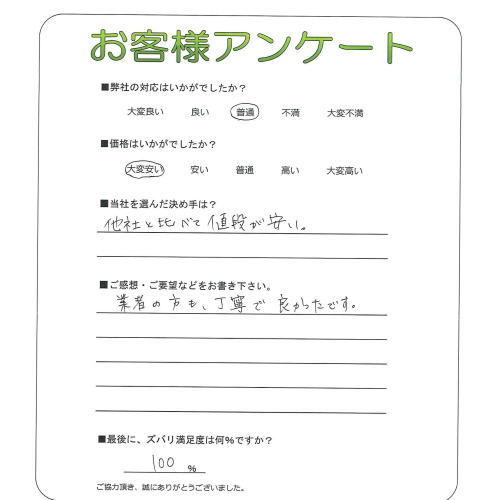 お客様アンケート
■弊社の対応はいかがでしたか？
大変良い 良い 普通 不満 大変不満
■価格はいかがでしたか？
大変安い 安い 普通 高い 大変高い
■当社を選んだ決め手は？
他社と比べて値段が安い。
■ご感想・ご要望などをお書き下さい。
業者の方も、丁寧で良かったです。
■最後に、ズバリ満足度は何％ですか？
100 ％
ご協力頂き、誠にありがとうございました。